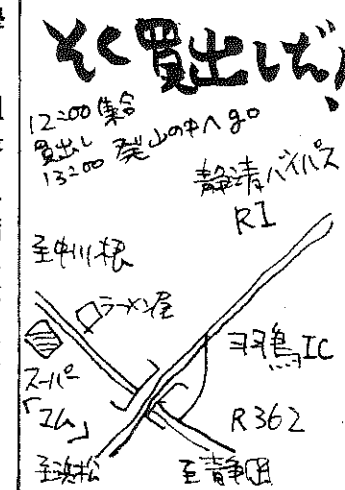 そく買出しだ!
12:00 集合
買出し
13:00 発 山の中へ go
静清バイパス
R1
至中川根
ラーメン屋
羽鳥IC
スーパー
「エム」
R362
至浜松
至静岡